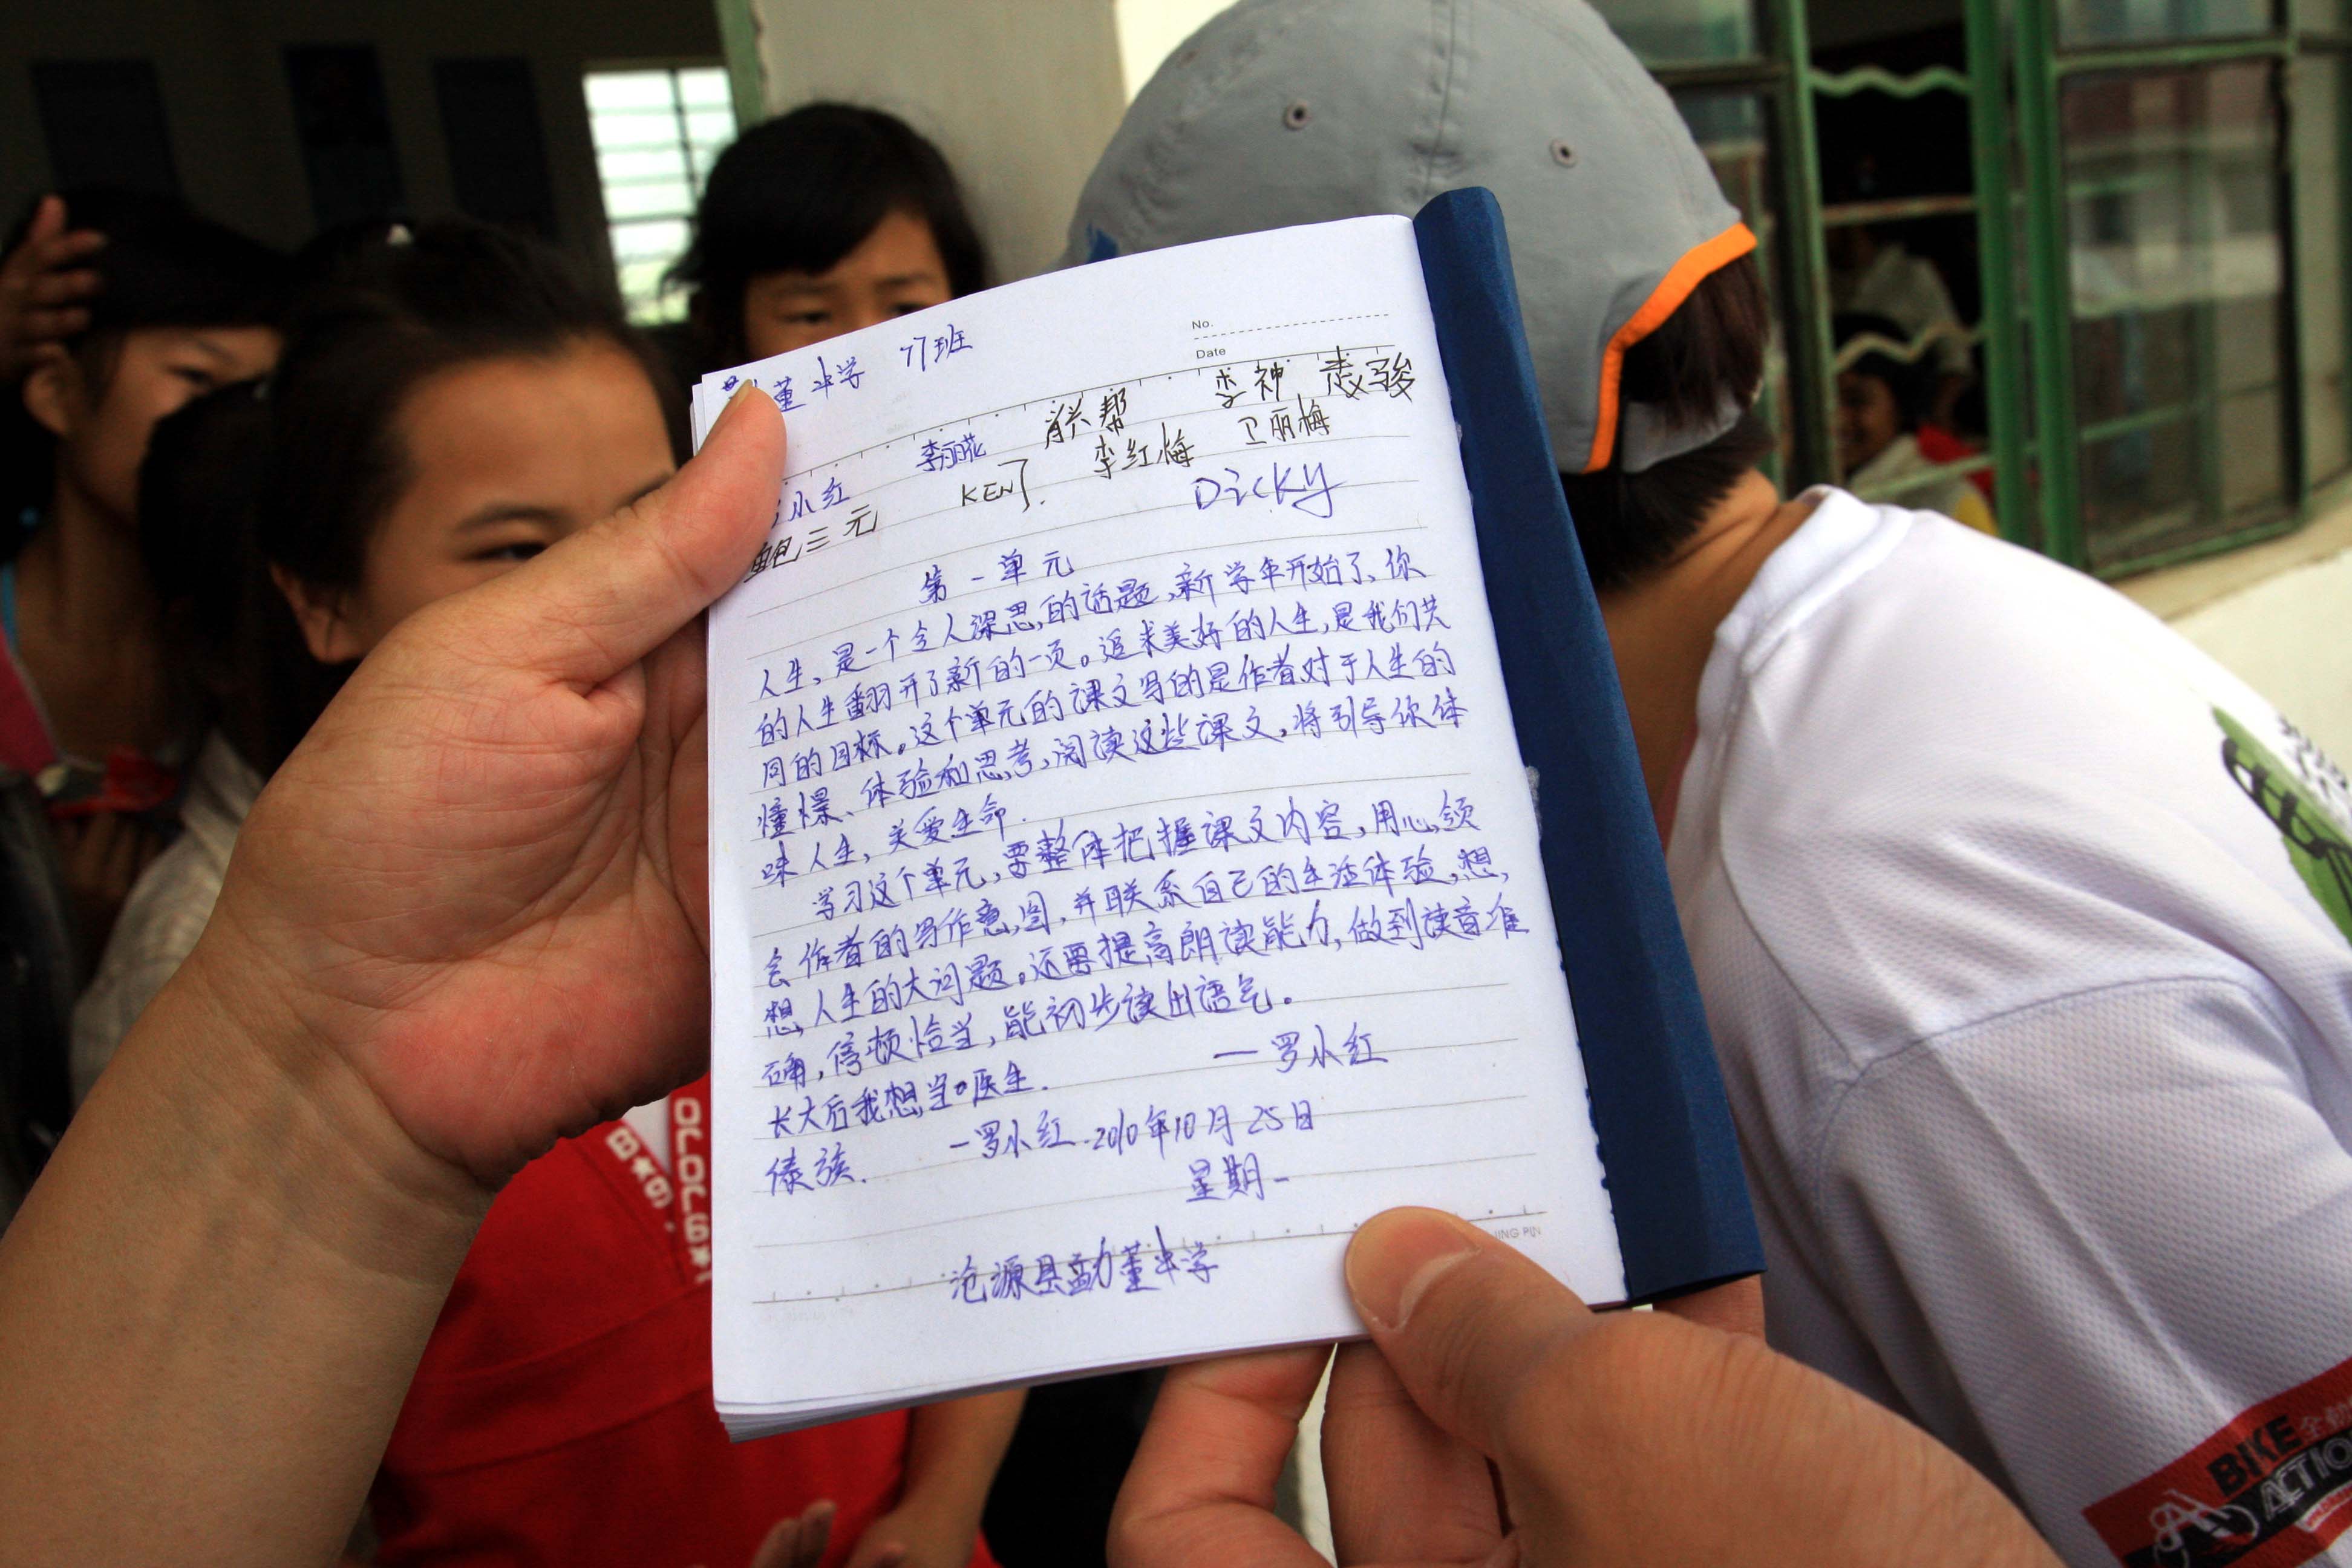 董中学 77班
No.
Date
李神 志骏
李丽花
帮
李红梅
卫丽梅
小红
三元
KEN
Dicky
第一单元
人生,是一个令人深思的话题,新学年开始了、你
的人生翻开了新的一页。追求美好的人生,是我们共
同的目标。这个单元的课文写的是作者对于人生的
憧憬、体验和思考,阅读这些课文,将引导你体
味人生,关爱生命.
学习这个单元,要整体把握课文内容,用心领
会作者的写作意图,并联系自己的生活体验,想,
想,人生的大问题。还要提高朗读能力,做到读音准
确,停顿恰当,能初步读出语气。
—罗小红
长大后我想当医生.
傣族. —罗小红.2010年10月25日
星期一
沧源县勐董中学
BIKE
ACTIO